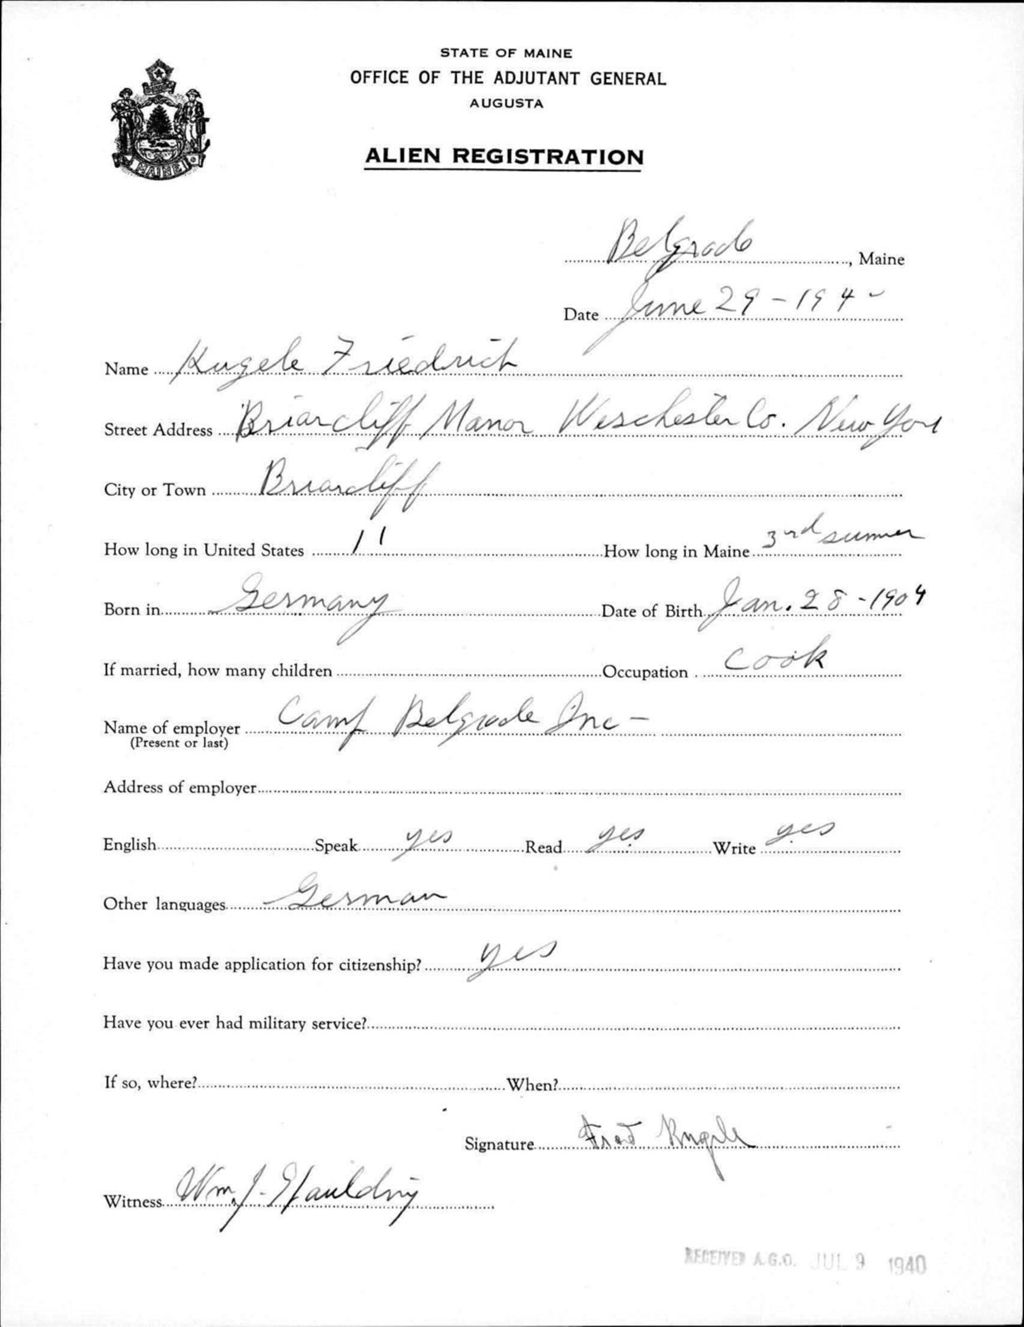 STATE OF MAINE
OFFICE OF THE ADJUTANT GENERAL
AUGUSTA
ALIEN REGISTRATION
MAINE
Belgrade, Maine
Date June 29-1940
Name Kugele Friedrich
Street Address Briarcliff Manor Weschester Co. New York
City or Town Briarcliff
How long in United States 11 How long in Maine 3rd summer
Born in Germany Date of Birth Jan. 28-1904
If married, how many children Occupation Cook
Name of employer Camp Belgrade Inc-
(Present or last)
Address of employer
English Speak yes Read yes Write yes
Other languages German
Have you made application for citizenship? yes
Have you ever had military service?
If so, where? When?
Signature Fred Kugele
Witness Wm. J. Spaulding
RECEIVED A.G.O. JUL 9 1940